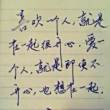 喜欢一个人，就是
在一起很开心，爱
一个人，就是即使不
开心，也想在一起。